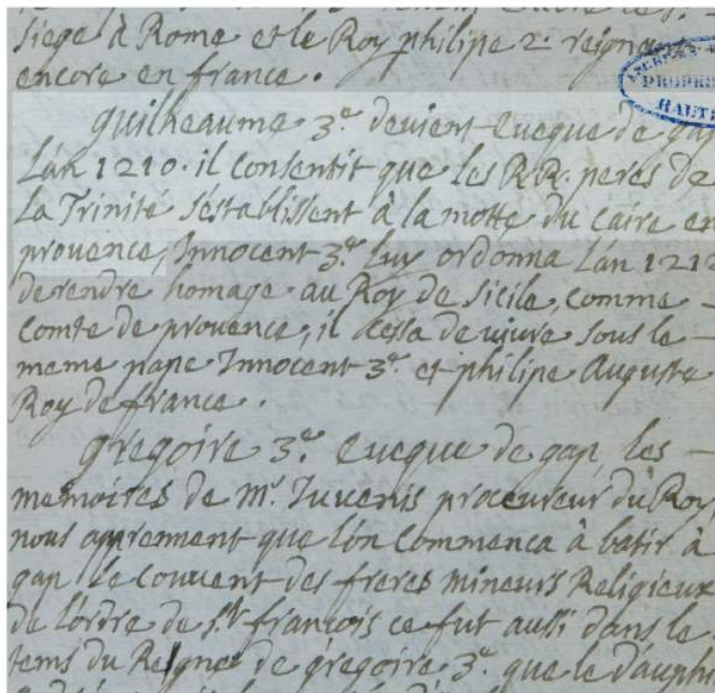 siege à Rome et le Roy philipe 2. reignant
encore en france.
guilheaume 3.e devient Eveque de gap
L'an 1210. il consentit que les R.R. peres de
La Trinité s'establissent à la motte du caire en
provence, Innocent 3.e luy ordonna l'an 1212
de rendre homage au Roy de Sicile, comme
comte de provence, il cessa de vivre sous le
meme pape Innocent 3.e et philipe Auguste
Roy de france.
gregoire 3.e Eveque de gap, les
memoires de Mr. Juvenis procureur du Roy,
nous apprennent que l'on commenca à batir à
gap le couvent des freres mineurs Religieux
de l'ordre de st. francois ce fut aussi dans le
tems du Reigne de gregoire 3.e que le dauphi
PROPRI
HAUTE